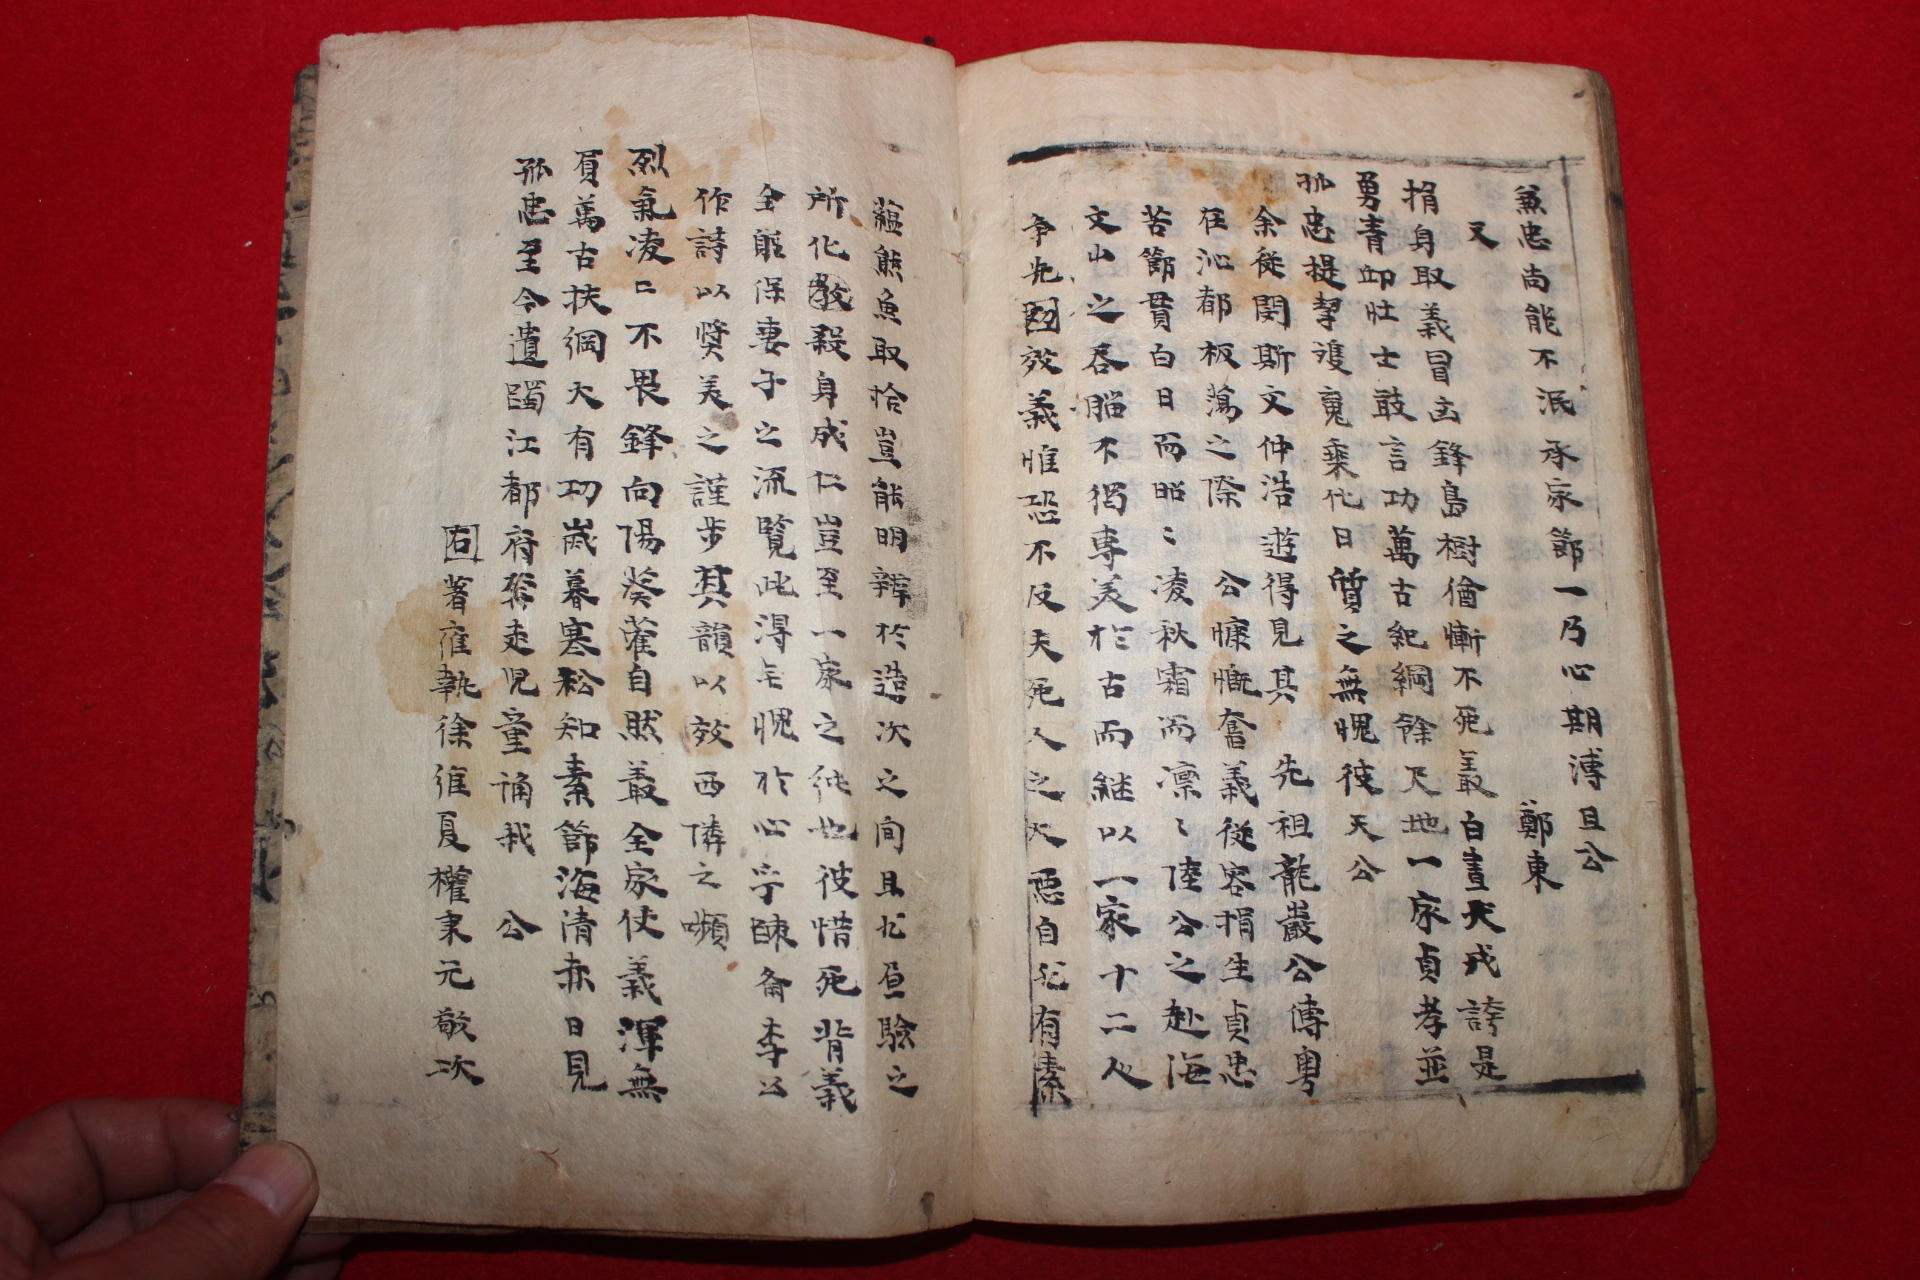 兼忠尚能不泯承家節一乃心期溥且公
鄭東
又
捐身取義冒凶鋒島樹偷慚不死叢白晝犬戎誇是
勇青卯壯士敢言功萬古紀綱餘尺地一家貞孝並
孤忠提挈魂乘化日質之無愧彼天公
余從閔斯文仲浩遊得見其 先祖龍巖公傳粤
在沁都板蕩之際 公慷慨奮義從容捐生貞忠
苦節貫白日而昭〻凌秋霜而凛〻陸公之赴海
文山之呑腦不獨專美於古而継以一家十二人
争死效義惟恐不及夫死人之大惡自非有素
蘊熊魚取拾豈能明辨於造次之间且九原驗之
所化殺身成仁豈至一家之純也彼惜死背義
全軀保妻子之流覽此得無愧於心乎陳侖李公
作詩以奬美之謹步其韻以效西隣之嚬
烈氣凌〻不畏鋒向陽葵藿自然叢全家仗義渾無
負萬古扶綱大有功嵗暮寒松知素節海清赤日見
孤忠至今遺躅江都府奔走児童誦我 公
右著雍執徐維夏權秉元敬次